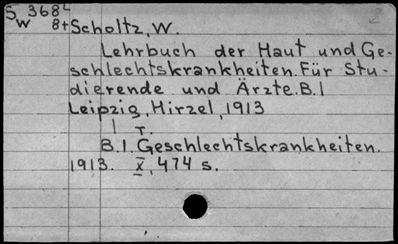 S 3684
W 8+ Scholtz, W.
Lehrbuch der Haut und Ge-
schlechtskrankheiten. Für Stu-
dierende und Ärzte. B.I
Leipzig, Hirzel, 1913
1 T.
B.I. Geschlechtskrankheiten.
1913. X, 474 s.